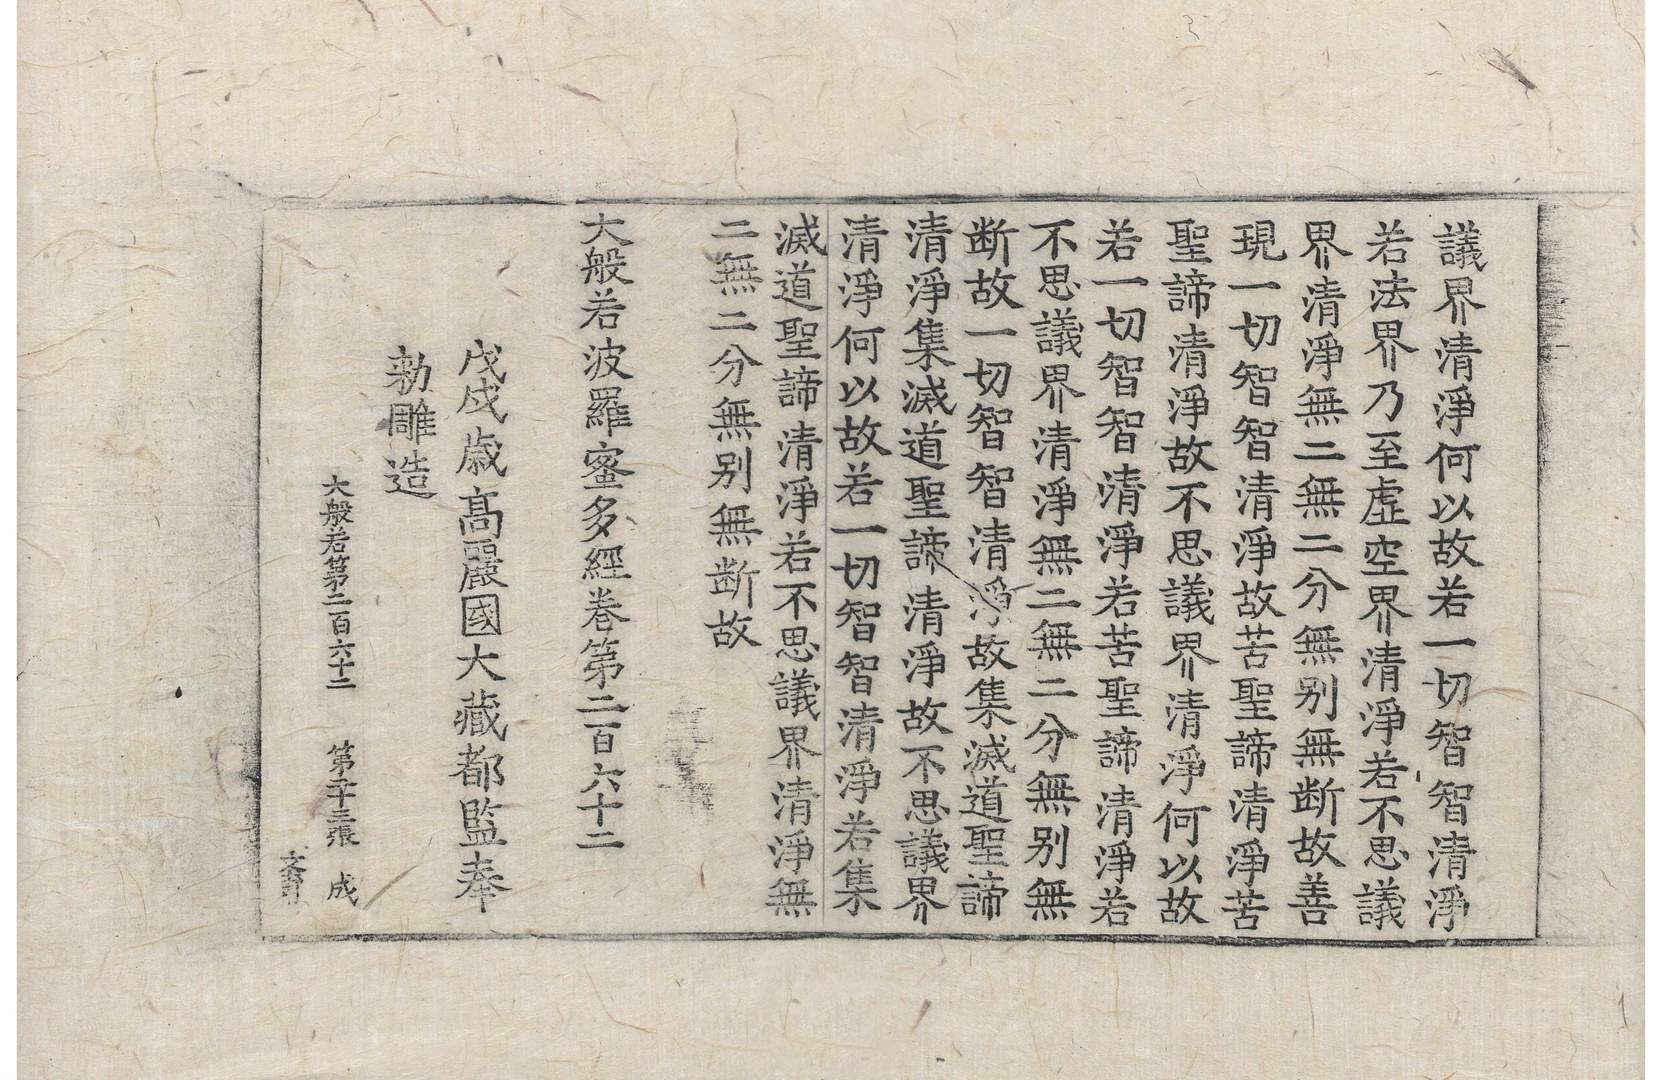 議界清淨何以故若一切智智清淨
若法界乃至虛空界清淨若不思議
界清淨無二無二分無別無斷故善
現一切智智清淨故苦聖諦清淨苦
聖諦清淨故不思議界清淨何以故
若一切智智清淨若苦聖諦清淨若
不思議界清淨無二無二分無別無
断故一切智智清淨故集滅道聖諦
清淨集滅道聖諦清淨故不思議界
清淨何以故若一切智智清淨若集
滅道聖諦清淨若不思議界清淨無
二無二分無別無断故
大般若波羅蜜多經卷第二百六十二
戊戌歲高麗國大藏都監奉
勅雕造
大般若第二百六十二 第二十三張 成